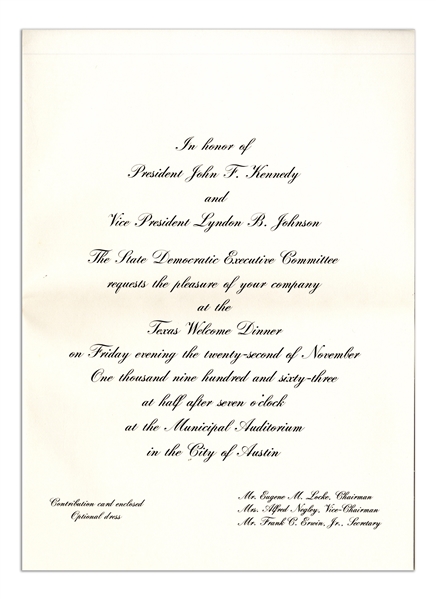 In honor of
President John F. Kennedy
and
Vice President Lyndon B. Johnson
The State Democratic Executive Committee
requests the pleasure of your company
at the
Texas Welcome Dinner
on Friday evening the twenty-second of November
One thousand nine hundred and sixty-three
at half after seven o'clock
at the Municipal Auditorium
in the City of Austin
Contribution card enclosed
Optional dress
Mr. Eugene M. Locke, Chairman
Mrs. Alfred Negley, Vice-Chairman
Mr. Frank C. Erwin, Jr., Secretary